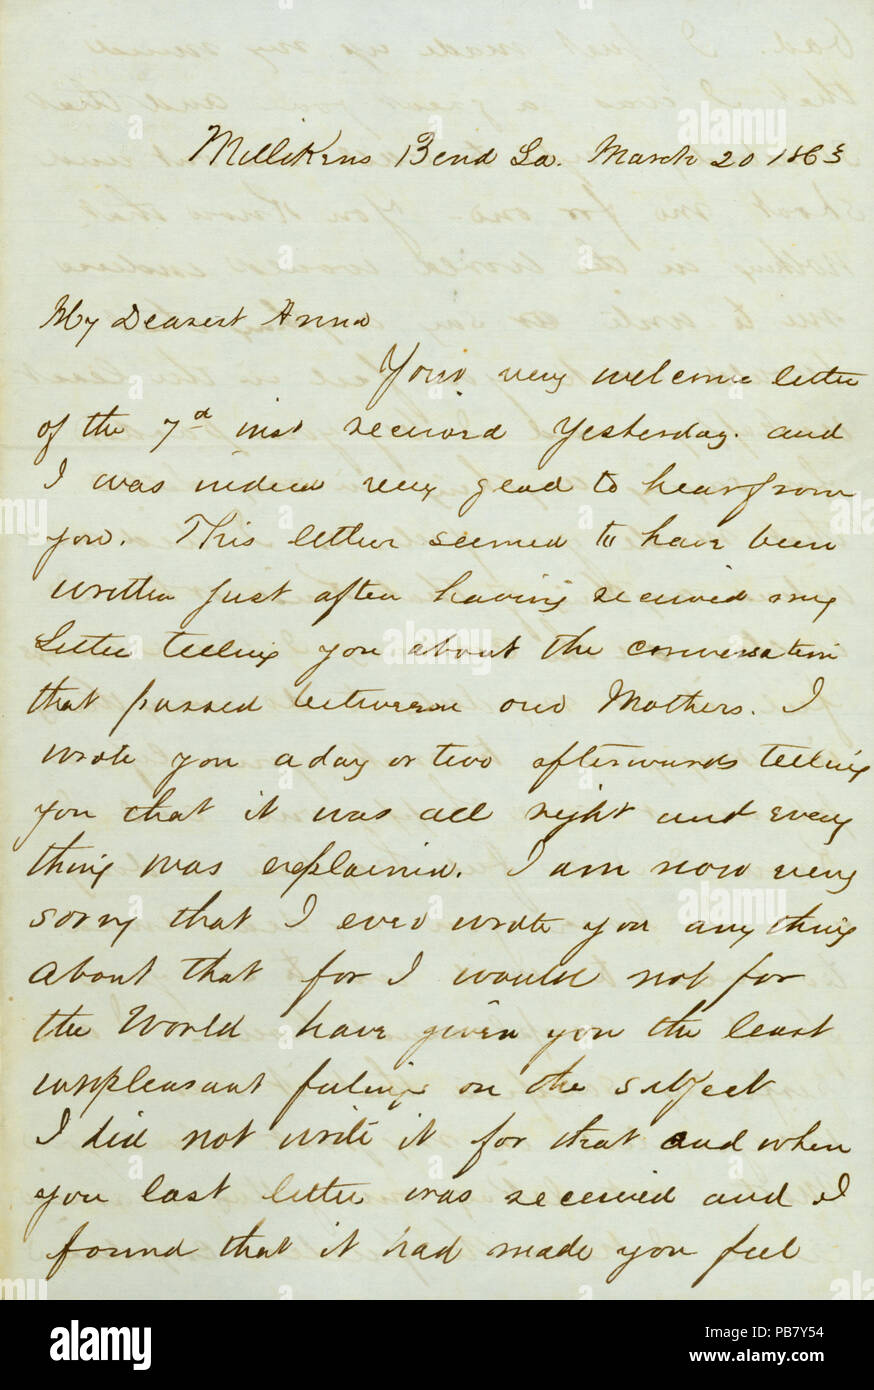 Millikens Bend La. March 20 1863
My Dearest Anna
Your very welcome letter
of the 7d inst received Yesterday. and
I was indeed very glad to hear from
you. This letter seemed to have been
written just after having received my
Letter telling you about the conversation
that passed between our Mothers. I
wrote you a day or two afterwards telling
you that it was all right and every
thing was explained. I am now very
sorry that I ever wrote you any thing
about that for I would not for
the World have given you the least
unpleasant feelings on the subject
I did not write it for that and when
you last letter was received and I
found that it had made you feel
alamy
alamy
alamy
alamy
alamy
Image ID: PB7Y54
www.alamy.com